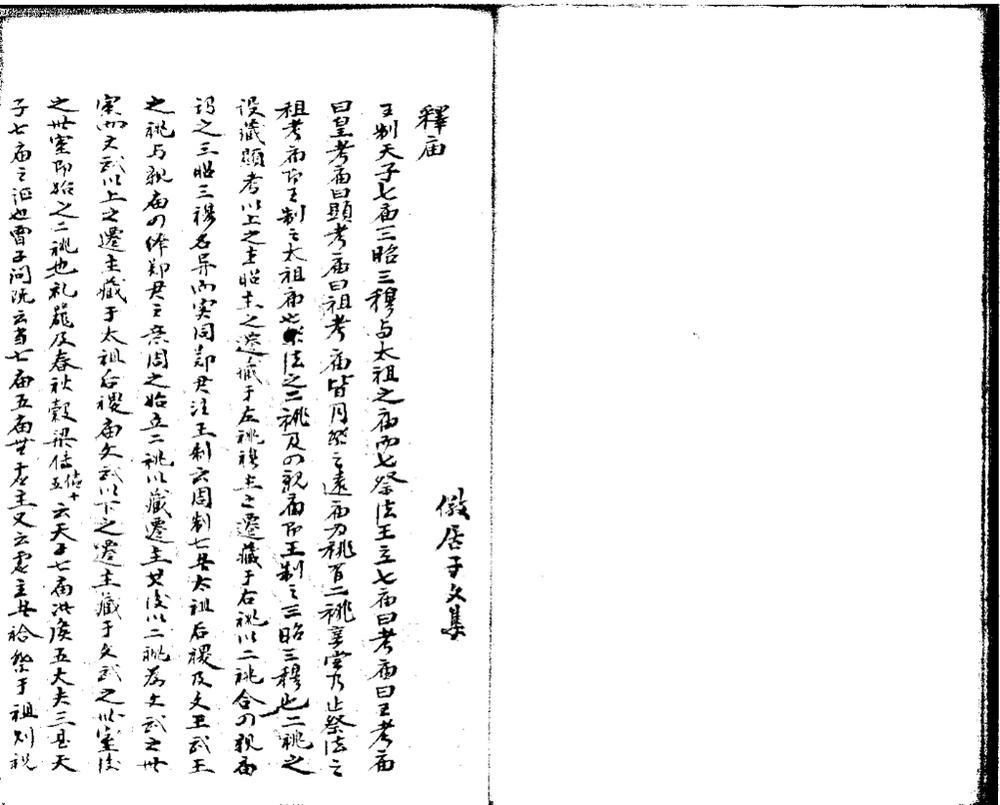 釋庙
儆居子文集
王制天子七庙三昭三穆与太祖之庙而七祭法王立七庙曰考庙曰王考庙
曰皇考庙曰顯考庙曰祖考庙皆月祭之遠庙为祧有二祧享尝乃止祭法之
祖考庙即王制之太祖庙也祭法之二祧及四親庙即王制之三昭三穆也二祧之
设藏顯考以上之主昭主之遷藏于左祧穆主之遷藏于右祧以二祧合四親庙
谓之三昭三穆名异而实同郑君注王制云周制七者太祖后稷及文王武王
之祧与親庙四绎郑君之意周之始立二祧以藏遷主其後以二祧为文武之世
室而文武以上之遷主藏于太祖后稷庙文武以下之遷主藏于文武之世室後
之世室即始之二祧也礼器及春秋穀梁传僖十五云天子七庙诸侯五大夫三是天
子七庙之证也曾子问既云当七庙五庙世無虚主又云虚主者祫祭于祖则祝